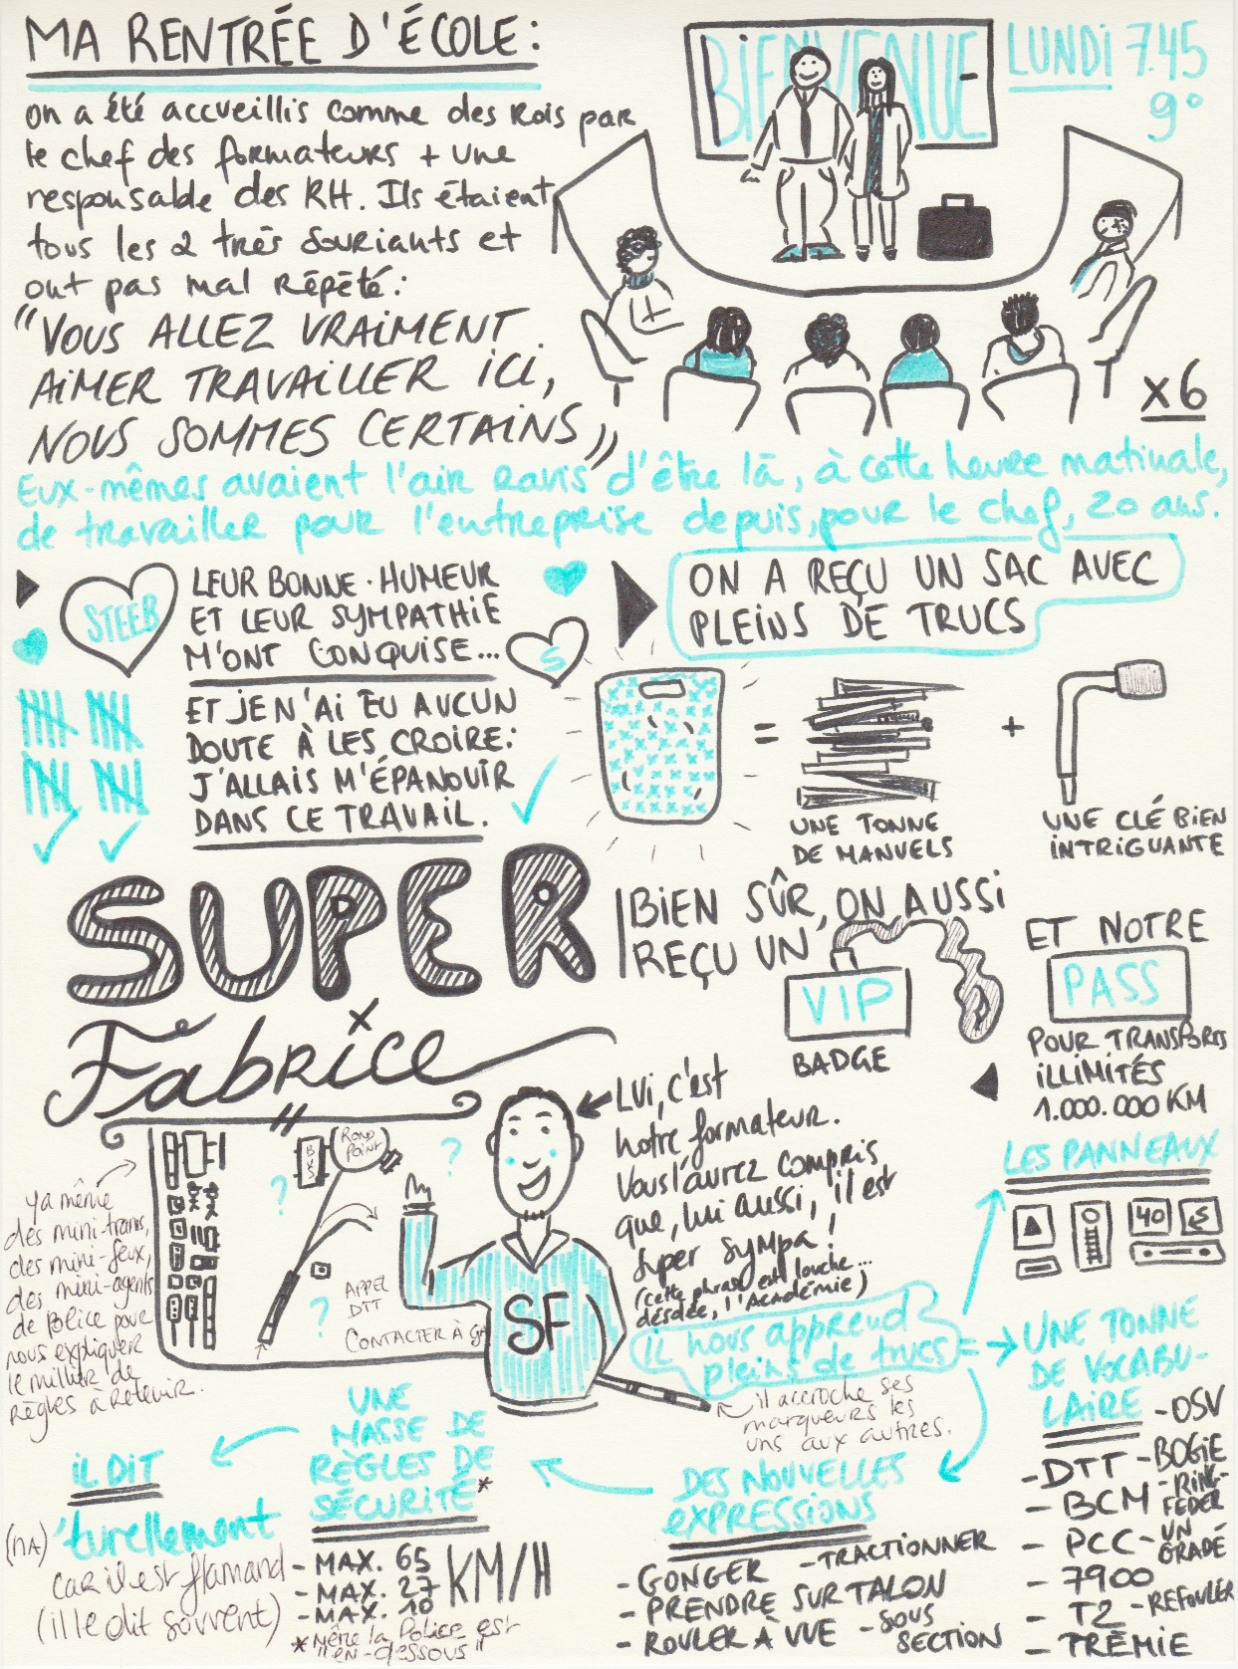 MA RENTRÉE D'ÉCOLE:
on a été accueillis comme des rois par
le chef des formateurs + une
responsable des RH. Ils étaient
tous les 2 très souriants et
ont pas mal répété:
"VOUS ALLEZ VRAIMENT
AIMER TRAVAILLER ICI,
NOUS SOMMES CERTAINS"
BIENVENUE
LUNDI 7.45
9°
x6
Eux-mêmes avaient l'air ravis d'être là, à cette heure matinale,
de travailler pour l'entreprise depuis, pour le chef, 20 ans.
STEEB
LEUR BONNE-HUMEUR
ET LEUR SYMPATHIE
M'ONT CONQUISE...
S
ET JE N'AI EU AUCUN
DOUTE À LES CROIRE:
J'ALLAIS M'ÉPANOUIR
DANS CE TRAVAIL.
ON A REÇU UN SAC AVEC
PLEINS DE TRUCS
=
UNE TONNE
DE MANUELS
+
UNE CLÉ BIEN
INTRIGUANTE
SUPER
Fabrice
BIEN SÛR, ON AUSSI
REÇU UN
VIP
BADGE
ET NOTRE
PASS
POUR TRANSPORTS
ILLIMITÉS
1.000.000 KM
Lui, c'est
notre formateur.
Vous l'aurez compris
que, lui aussi, il est
super sympa!
(cette phrase est louche...
désolée, l'Académie)
ya même
des mini-trams,
des mini-feux,
des mini-agents
de police pour
nous expliquer
le millier de
règles à retenir.
BUS
ROND
POINT
?
?
?
APPEL
DTT
CONTACTER À
SF
il nous apprend
pleins de trucs
=
il accroche ses
marqueurs les
uns aux autres.
LES PANNEAUX
40
UNE TONNE
DE VOCABU-
LAIRE
- OSV
- DTT - BOGIE
- BCM - RING-
FEDER
- PCC - UN
GRADÉ
- 7900
- T2 - REFOULER
- TRÉMIE
DES NOUVELLES
EXPRESSIONS
- GONGER - TRACTIONNER
- PRENDRE SUR TALON
- ROULER À VUE - SOUS
SECTION
UNE
MASSE DE
RÈGLES DE
SÉCURITÉ*
- MAX. 65
- MAX. 27
- MAX. 10
KM/H
* Même la Police est
"en-dessous"
IL DIT
(na) 'turellement
car il est flamand
(il le dit souvent)